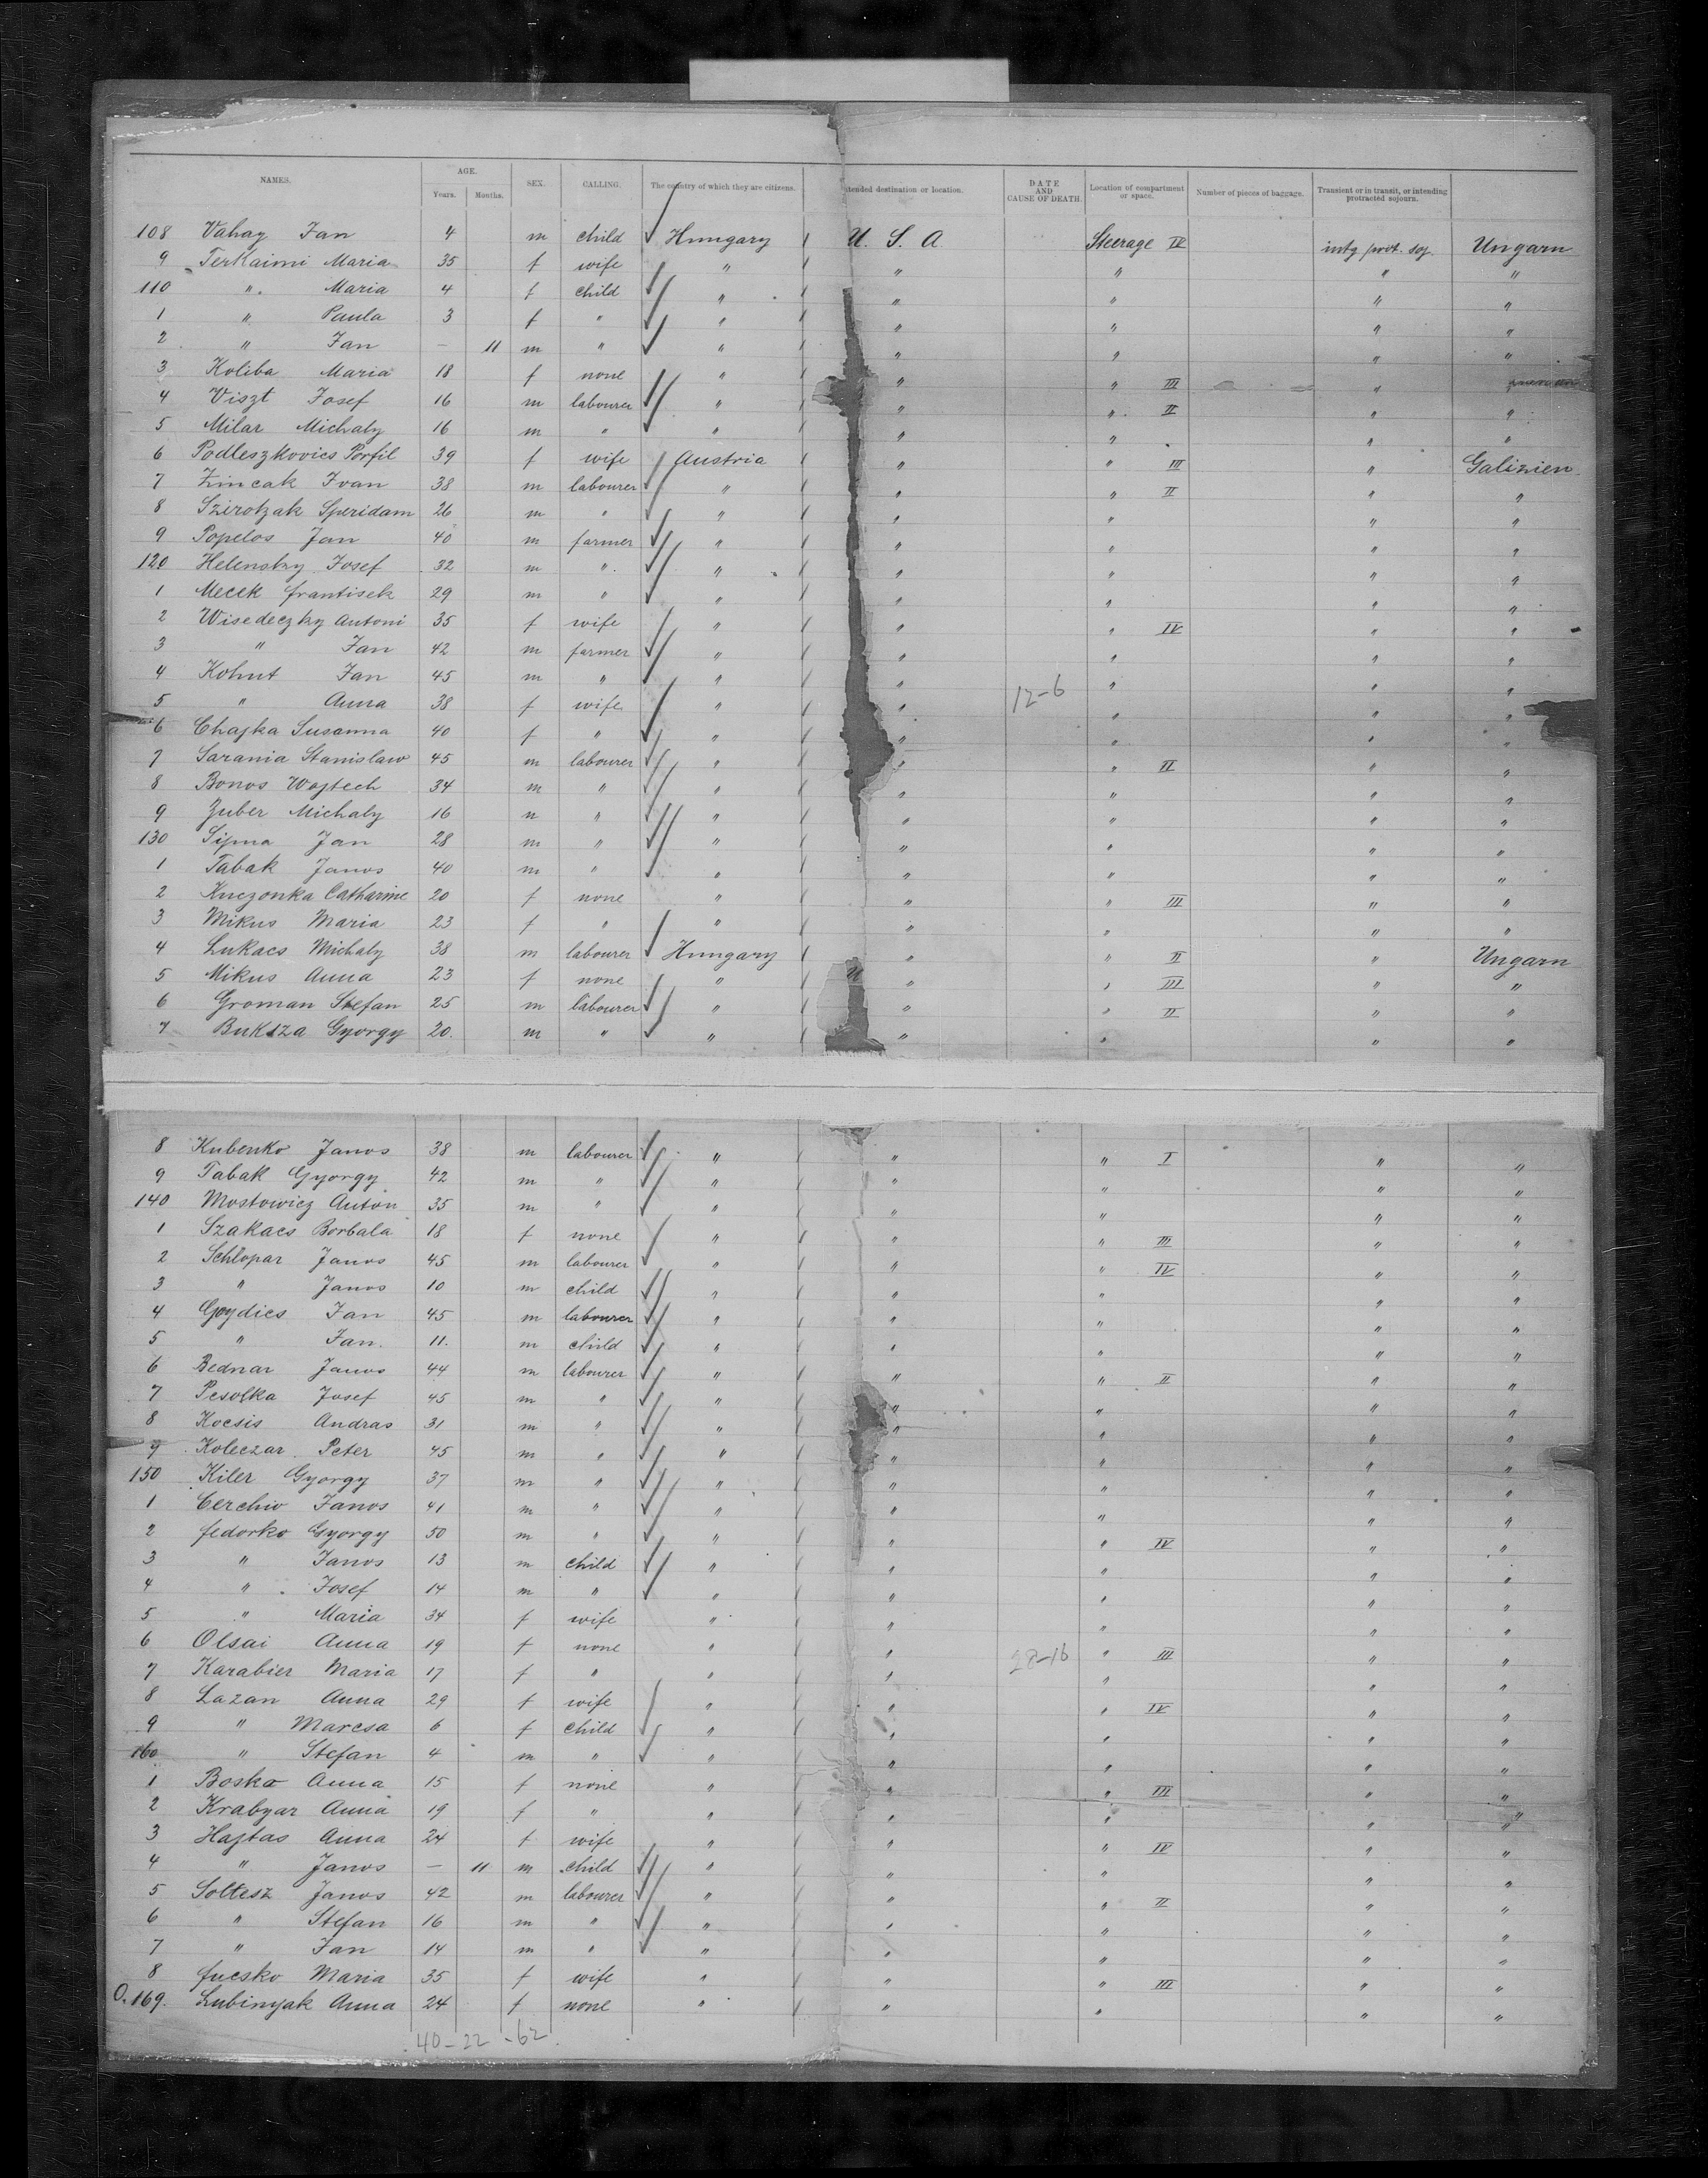 NAMES. AGE. Years. Months. SEX. CALLING. The country of which they are citizens. tended destination or location. DATE AND CAUSE OF DEATH. Location of compartment or space. Number of pieces of baggage. Transient or in transit, or intending protracted sojourn.
108 Vahay Jan 4 m child Hungary U. S. A. Steerage IV intg prot. soj. Ungarn
9 Terkaimi Maria 35 f wife " " " " "
110 " Maria 4 f child " " " " "
1 " Paula 3 f " " " " " "
2 " Jan — 11 m " " " " " "
3 Koliba Maria 18 f none " " " III "
4 Viszt Josef 16 m labourer " " " II " "
5 Milar Michaly 16 m " " " " " "
6 Podleszkovics Porfil 39 f wife Austria " " III " Galizien
7 Zincak Ivan 38 m labourer " " " II " "
8 Szirotzak Speridam 26 m " " " " " "
9 Popelos Jan 40 m farmer " " " " "
120 Helensky Josef 32 m " " " " " "
1 Mecek frantisek 29 m " " " " " "
2 Wisedeczky Antoni 35 f wife " " " IV " "
3 " Jan 42 m farmer " " " " "
4 Kohut Jan 45 m " " " 12-6 " " "
5 " Anna 38 f wife " " " " "
6 Chajka Susanna 40 f " " " " " "
7 Sarania Stanislaw 45 m labourer " " " II " "
8 Bonos Wojtech 34 m " " " " " "
9 Zuber Michaly 16 m " " " " " "
130 Sipma Jan 28 m " " " " " "
1 Tabak Janos 40 m " " " " " "
2 Knczonka Catharine 20 f none " " " III " "
3 Mikus Maria 23 f " " " " " "
4 Lukacs Michaly 38 m labourer Hungary " " II " Ungarn
5 Mikus Anna 23 f none " " " III " "
6 Groman Stefan 25 m labourer " " " II " "
7 Buksza Gyorgy 20. m " " " " " "
8 Kubenko Janos 38 m labourer " " " I " "
9 Tabak Gyorgy 42 m " " " " " "
140 Mostowicz Anton 35 m " " " " " "
1 Szakacs Borbala 18 f none " " " III " "
2 Schlopar Janos 45 m labourer " " " IV " "
3 " Janos 10 m child " " " " "
4 Goydics Jan 45 m labourer " " " " "
5 " Jan. 11. m child " " " " "
6 Bednar Janos 44 m labourer " " " II " "
7 Pesolka Josef 45 m " " " " " "
8 Kocsis Andras 31 m " " " " " "
9 Koleczar Peter 45 m " " " " " "
150 Kiler Gyorgy 37 m " " " " " "
1 Cerchio Janos 41 m " " " " " "
2 fedorko Gyorgy 50 m " " " " IV " "
3 " Janos 13 m child " " " " "
4 " Josef 14 m " " " " " "
5 " Maria 34 f wife " " " " "
6 Olsai Anna 19 f none " " 28-16 " III " "
7 Karabier Maria 17 f " " " " " "
8 Lazan Anna 29 f wife " " " IV " "
9 " Marcsa 6 f child " " " " "
160 " Stefan 4 m " " " " " "
1 Bosko Anna 15 f none " " " III " "
2 Krabyar Anna 19 f " " " " " "
3 Hajtas Anna 24 f wife " " " IV " "
4 " Janos — 11 m child " " " " "
5 Soltesz Janos 42 m labourer " " " II " "
6 " Stefan 16 m " " " " " "
7 " Jan 14 m " " " " " "
8 fucsko Maria 35 f wife " " " III " "
O. 169. Lubinyak Anna 24 f none " " " " "
40-22-62